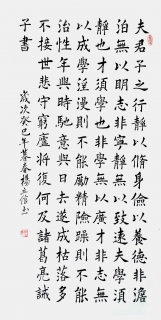 夫君子之行靜以脩身儉以養德非澹
泊無以明志非寧靜無以致遠夫學須
靜也才須學也非學無以廣才非志無
以成學淫漫則不能勵精險躁則不能
治性年與時馳意與日去遂成枯落多
不接世悲守窮廬將復何及諸葛亮誡
子書
歲次癸巳年暮春楊